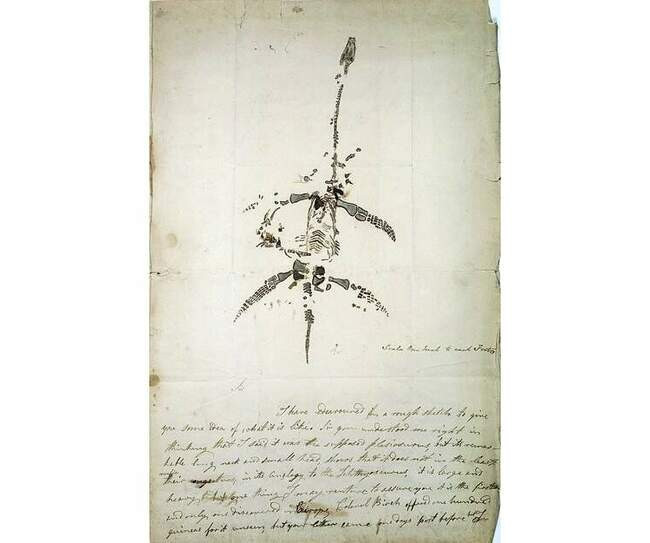 Scale one Inch to each Foot
Sir
I have endeavoured by a rough sketch to give
you some idea of what it is like. Sir you understood me right in
thinking that I said it was the supposed plesiosaurus, but its remar-
kable long neck and small head shows that it does not in the least
verify their conjectures, in its analogy to the Ichthyosaurus, it is large and
heavy, but one thing I may venture to assure you it is the first
and only one discovered in Europe, Colonel Birch offered one hundred
guineas for it unseen, but your letter came one days post before